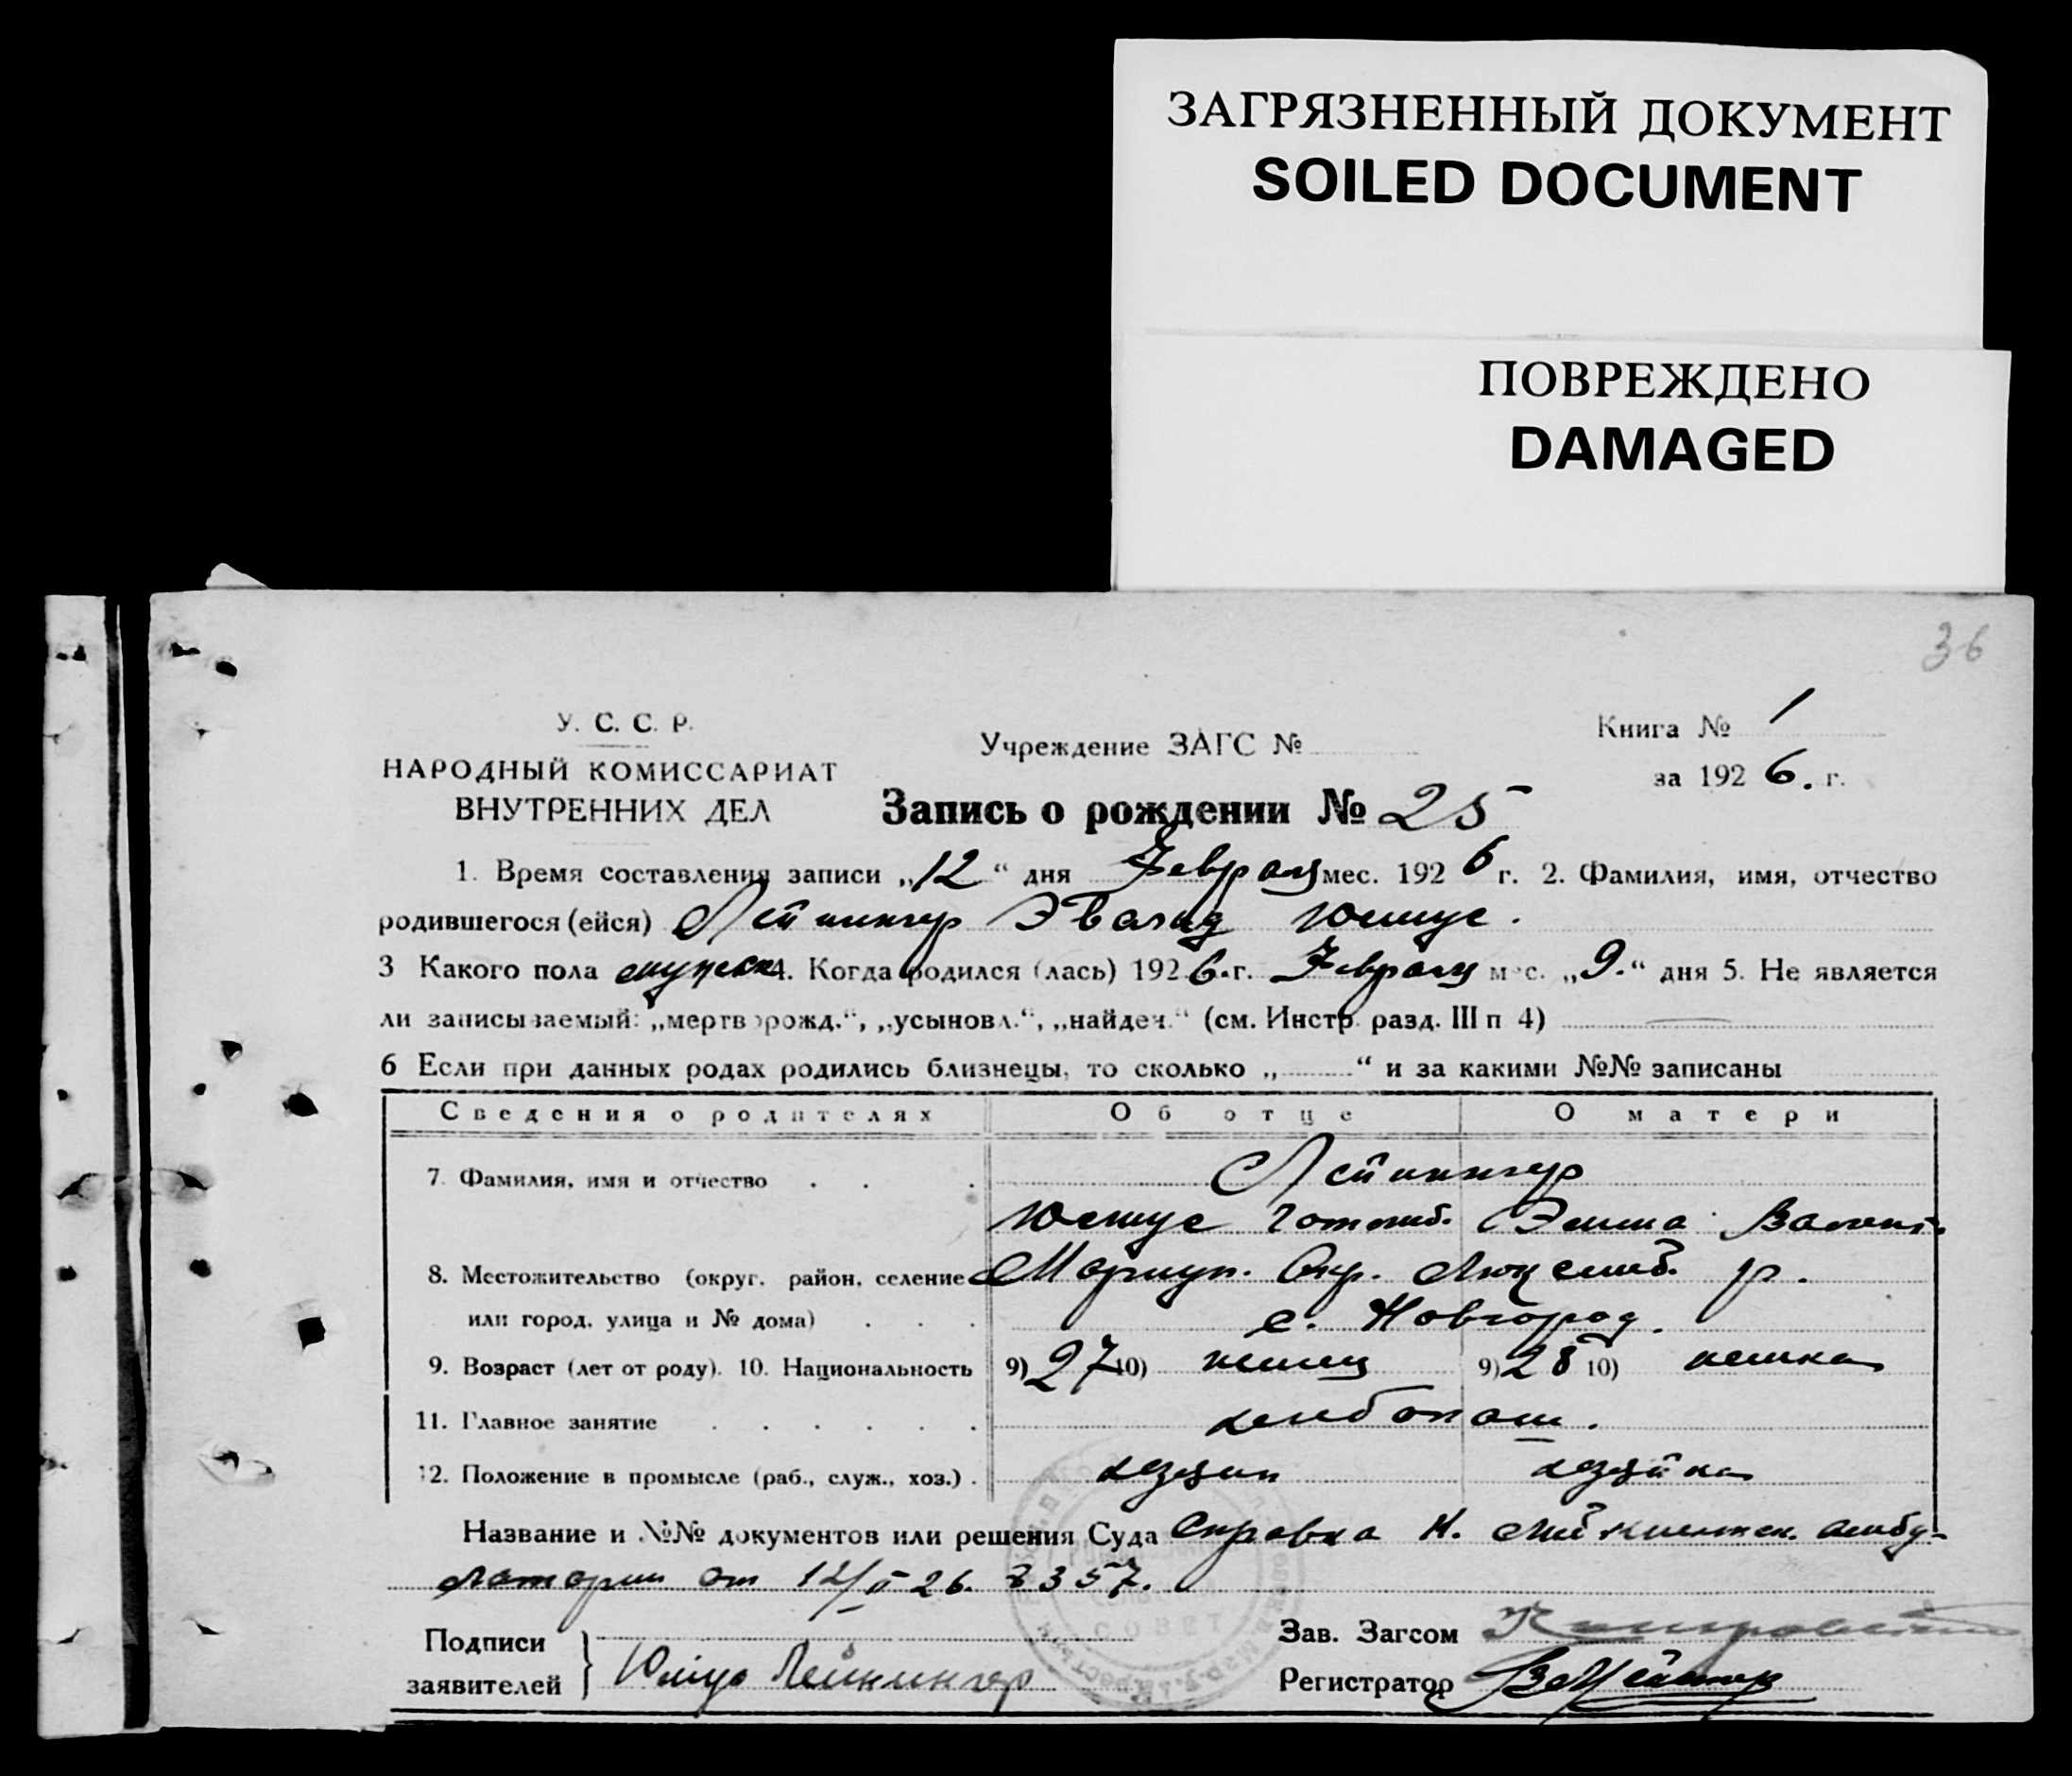 ЗАГРЯЗНЕННЫЙ ДОКУМЕНТ
SOILED DOCUMENT
ПОВРЕЖДЕНО
DAMAGED
36
У. С. С. Р.
НАРОДНЫЙ КОМИССАРИАТ
ВНУТРЕННИХ ДЕЛ
Учреждение ЗАГС №
Книга № 1
за 1926. г.
Запись о рождении № 25
1. Время составления записи „12“ дня Февраля мес. 1926 г. 2. Фамилия, имя, отчество
родившегося (ейся) Лейнингер Эвальд Юлиус.
3 Какого пола мужск 4. Когда родился (лась) 1926. г. Февраля мес. „9.“ дня 5. Не является
ли записываемый: „мертворожд.“, „усыновл.“, „найден.“ (см. Инстр. разд. III п 4)
6 Если при данных родах родились близнецы, то сколько „ “ и за какими №№ записаны
Сведения о родителях Об отце О матери
7. Фамилия, имя и отчество Лейнингер
Юлиус Готлиб. Эмма Валент.
8. Местожительство (округ, район, селение Мариуп. Окр. Люксемб. р.
или город, улица и № дома) с. Новгород.
9. Возраст (лет от роду). 10. Национальность 9) 27 10) немец 9) 28 10) немка
11. Главное занятие хлебопаш.
12. Положение в промысле (раб., служ., хоз.) хозяин хозяйка
Название и №№ документов или решения Суда Справка Н. амбу-
латории от 12/II 26. 357.
СОВЕТ
Подписи
заявителей } Юлиус Лейнингер
Зав. Загсом
Регистратор